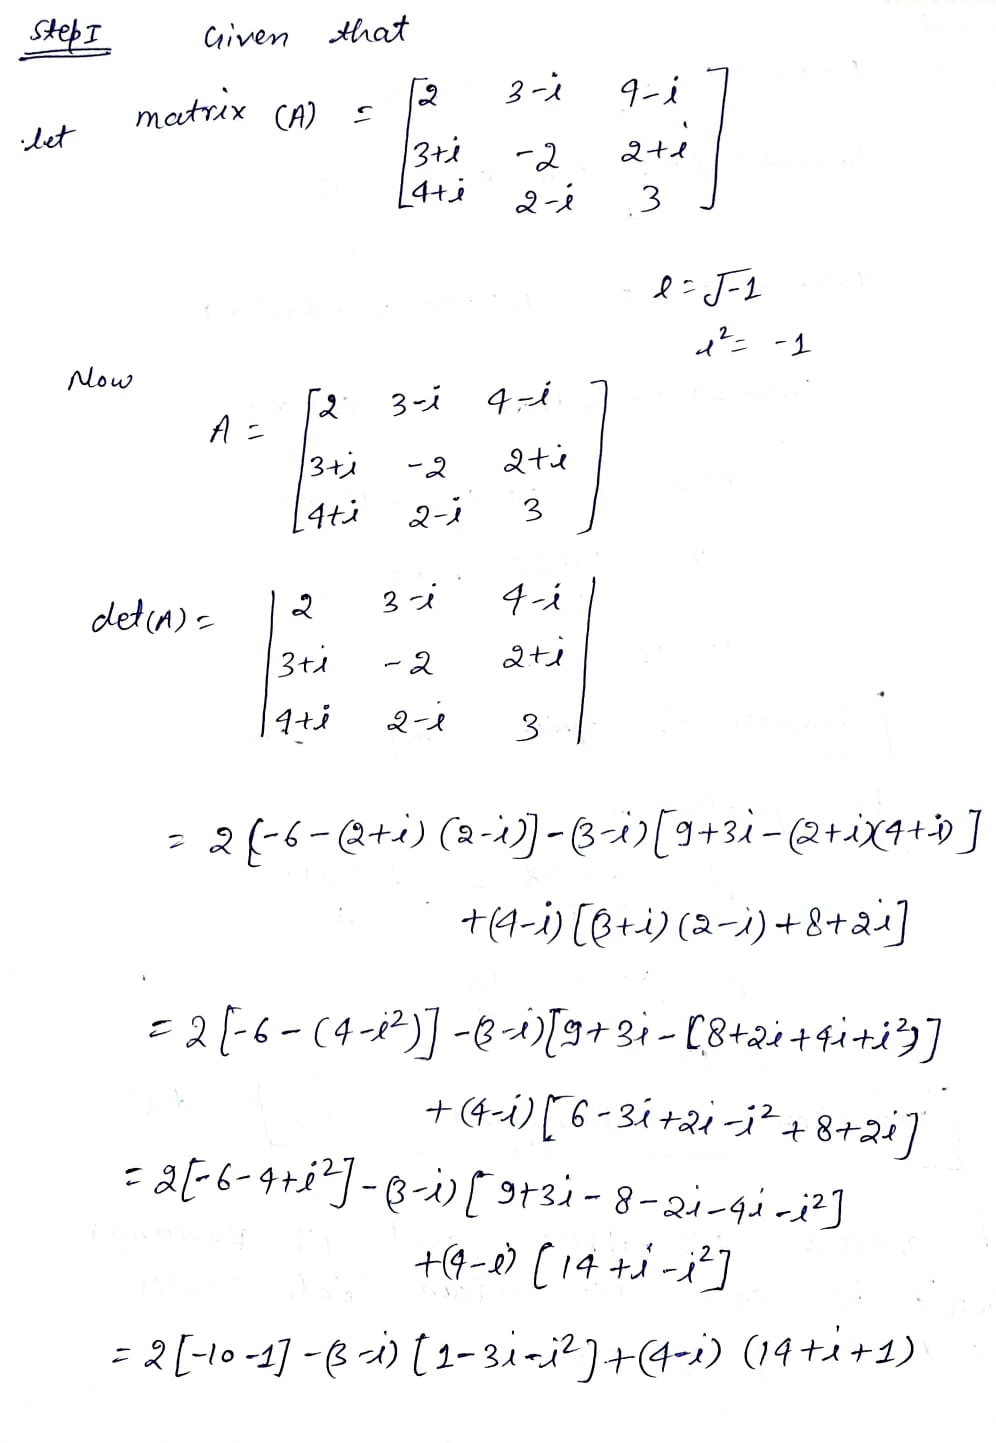 Step I Given that
let matrix (A) = [2 3-i 4-i
3+i -2 2+i
4+i 2-i 3]
i = √-1
i² = -1
Now
A = [2 3-i 4-i
3+i -2 2+i
4+i 2-i 3]
det(A) = |2 3-i 4-i
3+i -2 2+i
4+i 2-i 3|
= 2[-6-(2+i)(2-i)]-(3-i)[9+3i-(2+i)(4+i)]
+(4-i)[(3+i)(2-i)+8+2i]
= 2[-6-(4-i²)]-(3-i)[9+3i-[8+2i+4i+i²]]
+(4-i)[6-3i+2i-i²+8+2i]
= 2[-6-4+i²]-(3-i)[9+3i-8-2i-4i-i²]
+(4-i)[14+i-i²]
= 2[-10-1]-(3-i)[1-3i-i²]+(4-i)(14+i+1)